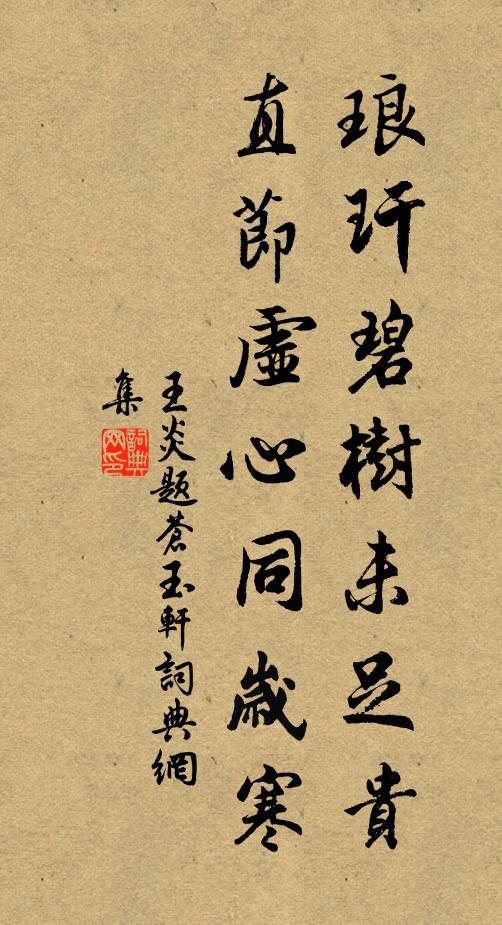 琅玕碧樹未足貴
直節虛心同歲寒
王炎題蒼玉軒詞典網
集
詞典網印